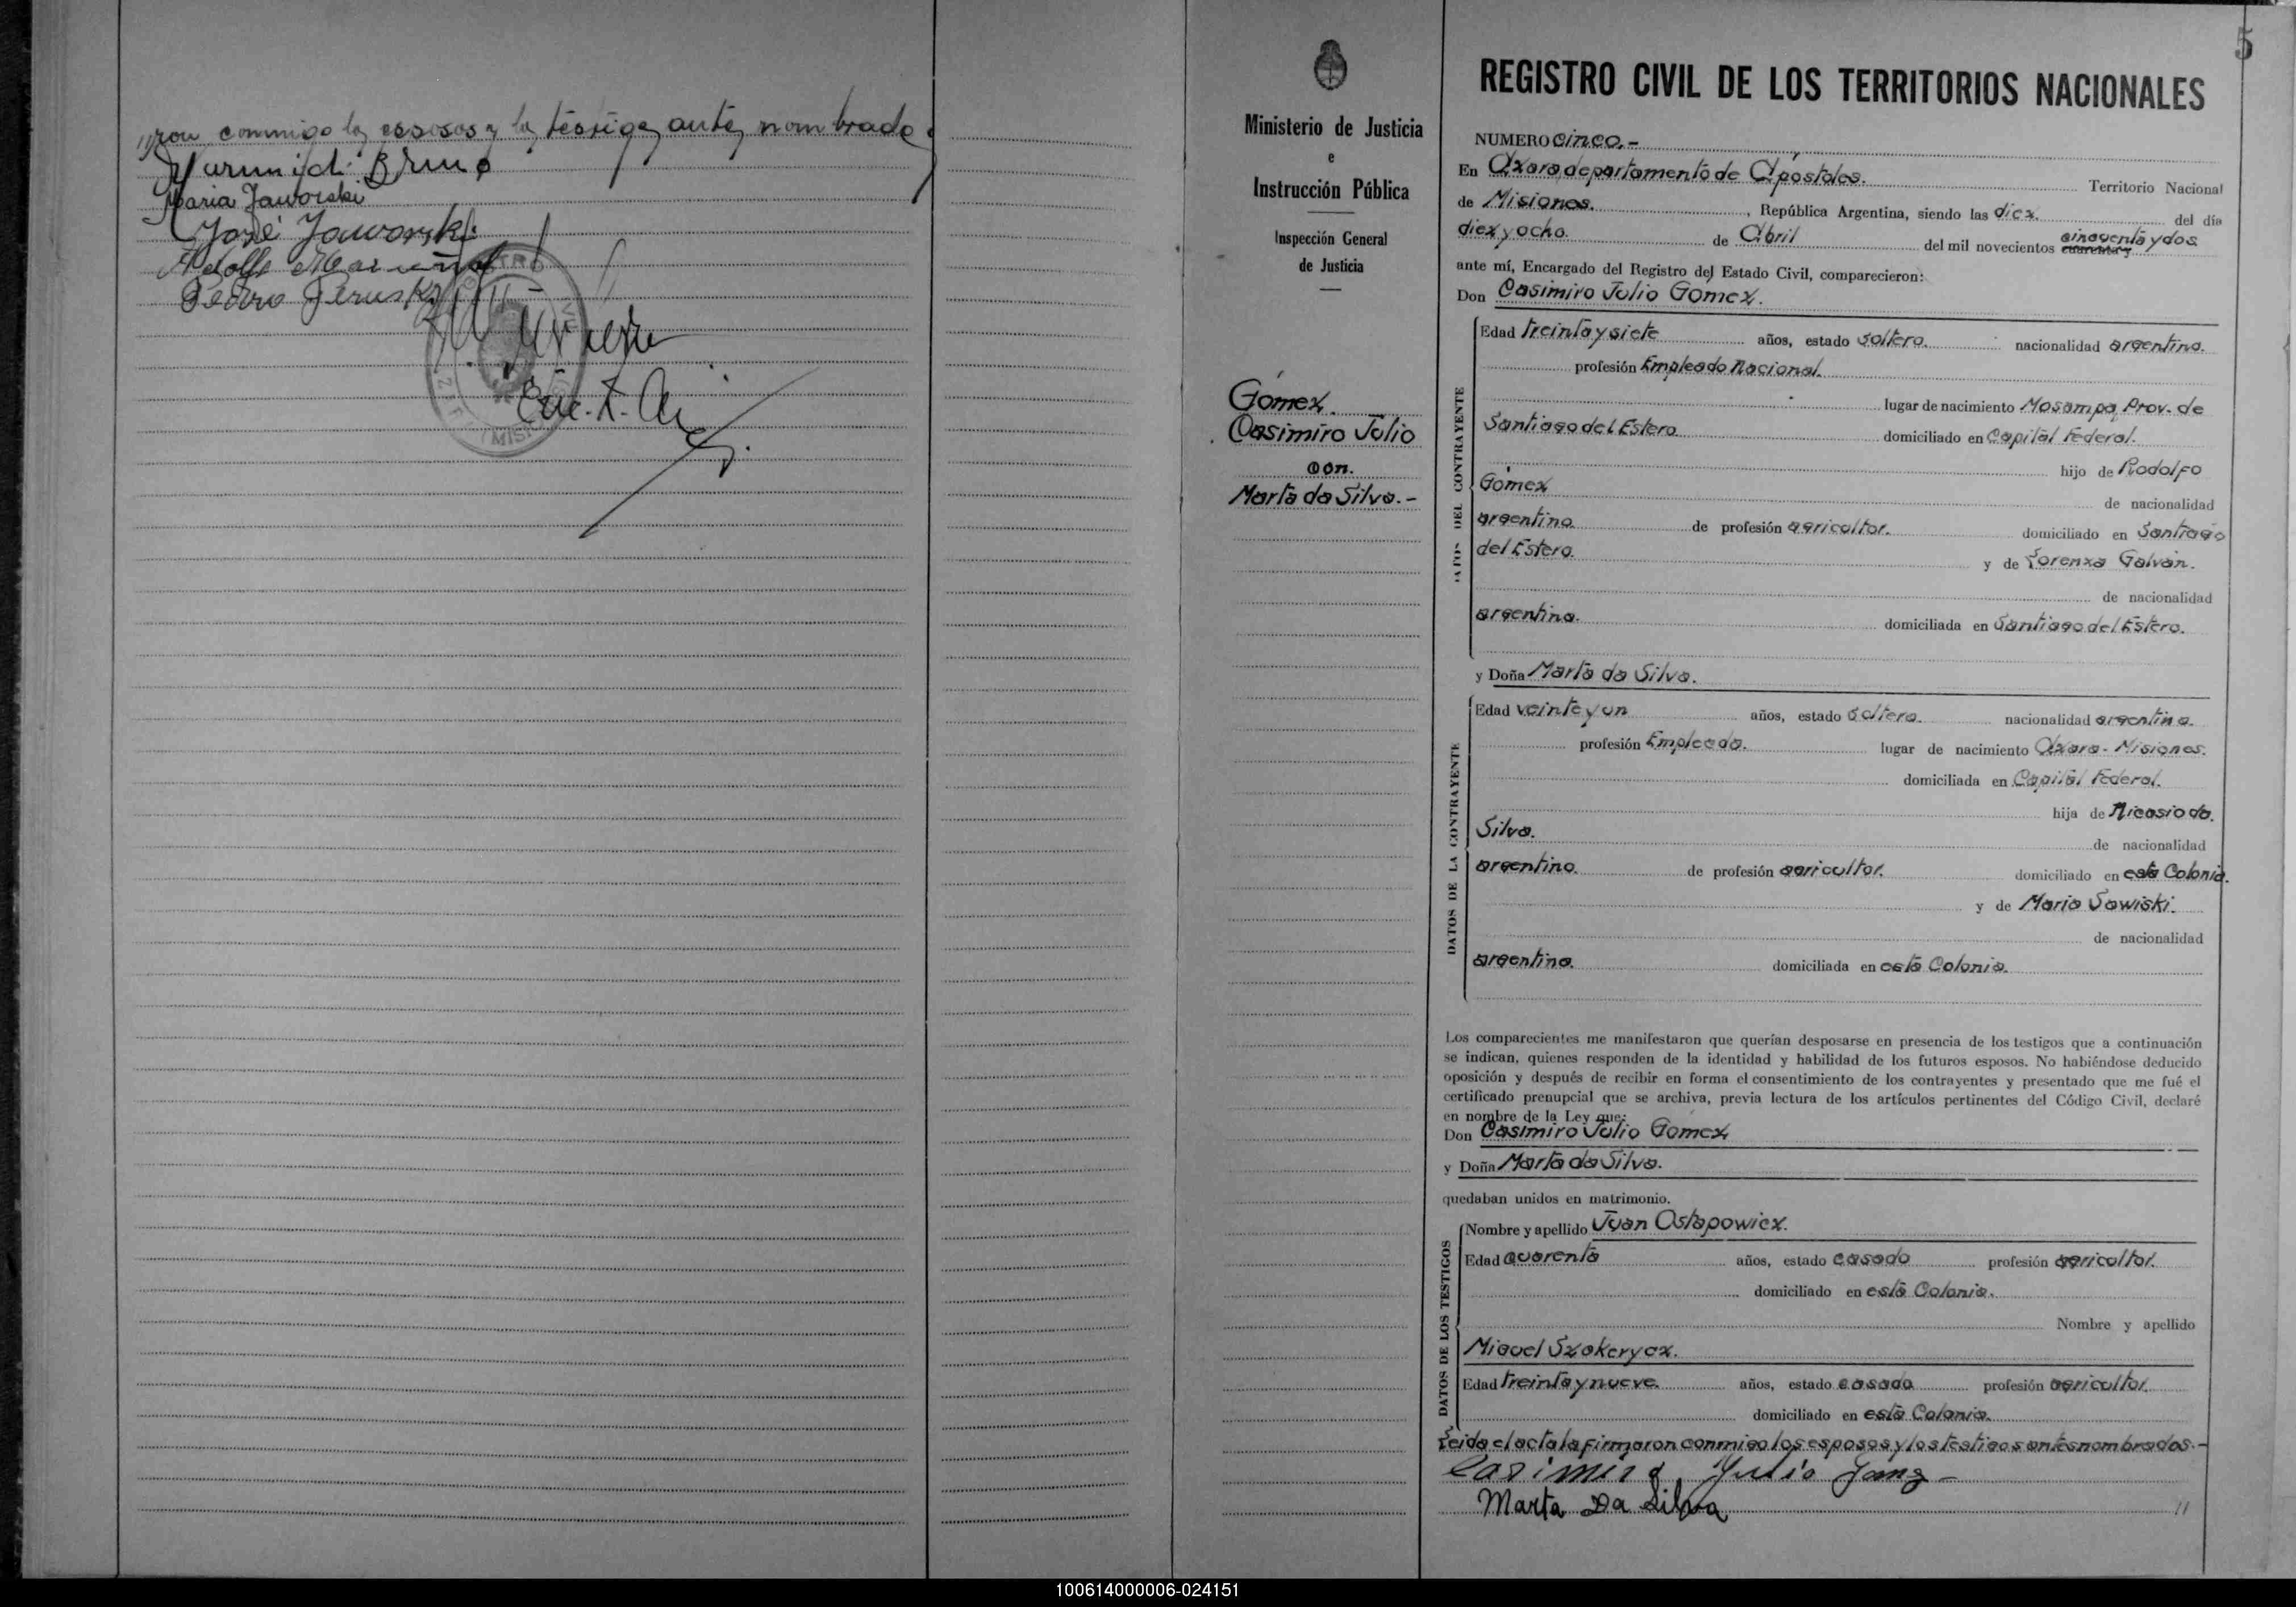 ron conmigo los esposos y los testigos antes nombrados
Maria Jaworski
José Jaworski
Pedro
5
Ministerio de Justicia
e
Instrucción Pública
Inspección General
de Justicia
Gómez
Casimiro Julio
con.
Marta da Silva.-
REGISTRO CIVIL DE LOS TERRITORIOS NACIONALES
NUMERO cinco.-
En Azara, departamento de Apóstoles. Territorio Nacional
de Misiones. , República Argentina, siendo las diez. del día
diez y ocho. de Abril del mil novecientos cuarenta y cincuenta y dos
ante mí, Encargado del Registro del Estado Civil, comparecieron:
Don Casimiro Julio Gomez.
DATOS DEL CONTRAYENTE
Edad treinta y siete años, estado soltero. nacionalidad argentina.
profesión Empleado Nacional.
lugar de nacimiento Mosampa, Prov. de
Santiago del Estero domiciliado en Capital Federal.
hijo de Rodolfo
Gómez de nacionalidad
argentina de profesión agricultor. domiciliado en Santiago
del Estero. y de Lorenza Galván.
de nacionalidad
argentina. domiciliada en Santiago del Estero.
y Doña Marta da Silva.
DATOS DE LA CONTRAYENTE
Edad veinte y un años, estado soltera. nacionalidad argentina.
profesión Empleada. lugar de nacimiento Azara - Misiones.
domiciliada en Capital Federal.
hija de Nicasio da
Silva. de nacionalidad
argentino. de profesión agricultor. domiciliado en esta Colonia.
y de Maria Sawiski.
de nacionalidad
argentina. domiciliada en esta Colonia.
Los comparecientes me manifestaron que querían desposarse en presencia de los testigos que a continuación
se indican, quienes responden de la identidad y habilidad de los futuros esposos. No habiéndose deducido
oposición y después de recibir en forma el consentimiento de los contrayentes y presentado que me fué el
certificado prenupcial que se archiva, previa lectura de los artículos pertinentes del Código Civil, declaré
en nombre de la Ley que:
Don Casimiro Julio Gomez
y Doña Marta da Silva.
quedaban unidos en matrimonio.
DATOS DE LOS TESTIGOS
Nombre y apellido Juan Ostapowicz.
Edad cuarenta años, estado casado profesión agricultor.
domiciliado en esta Colonia.
Nombre y apellido
Miguel Szokerycz.
Edad treinta y nueve. años, estado casado profesión agricultor.
domiciliado en esta Colonia.
Leida el acta la firmaron conmigo los esposos y los testigos antes nombrados.-
Casimiro Julio Gómez
Marta Da Silva //
100614000006-024151